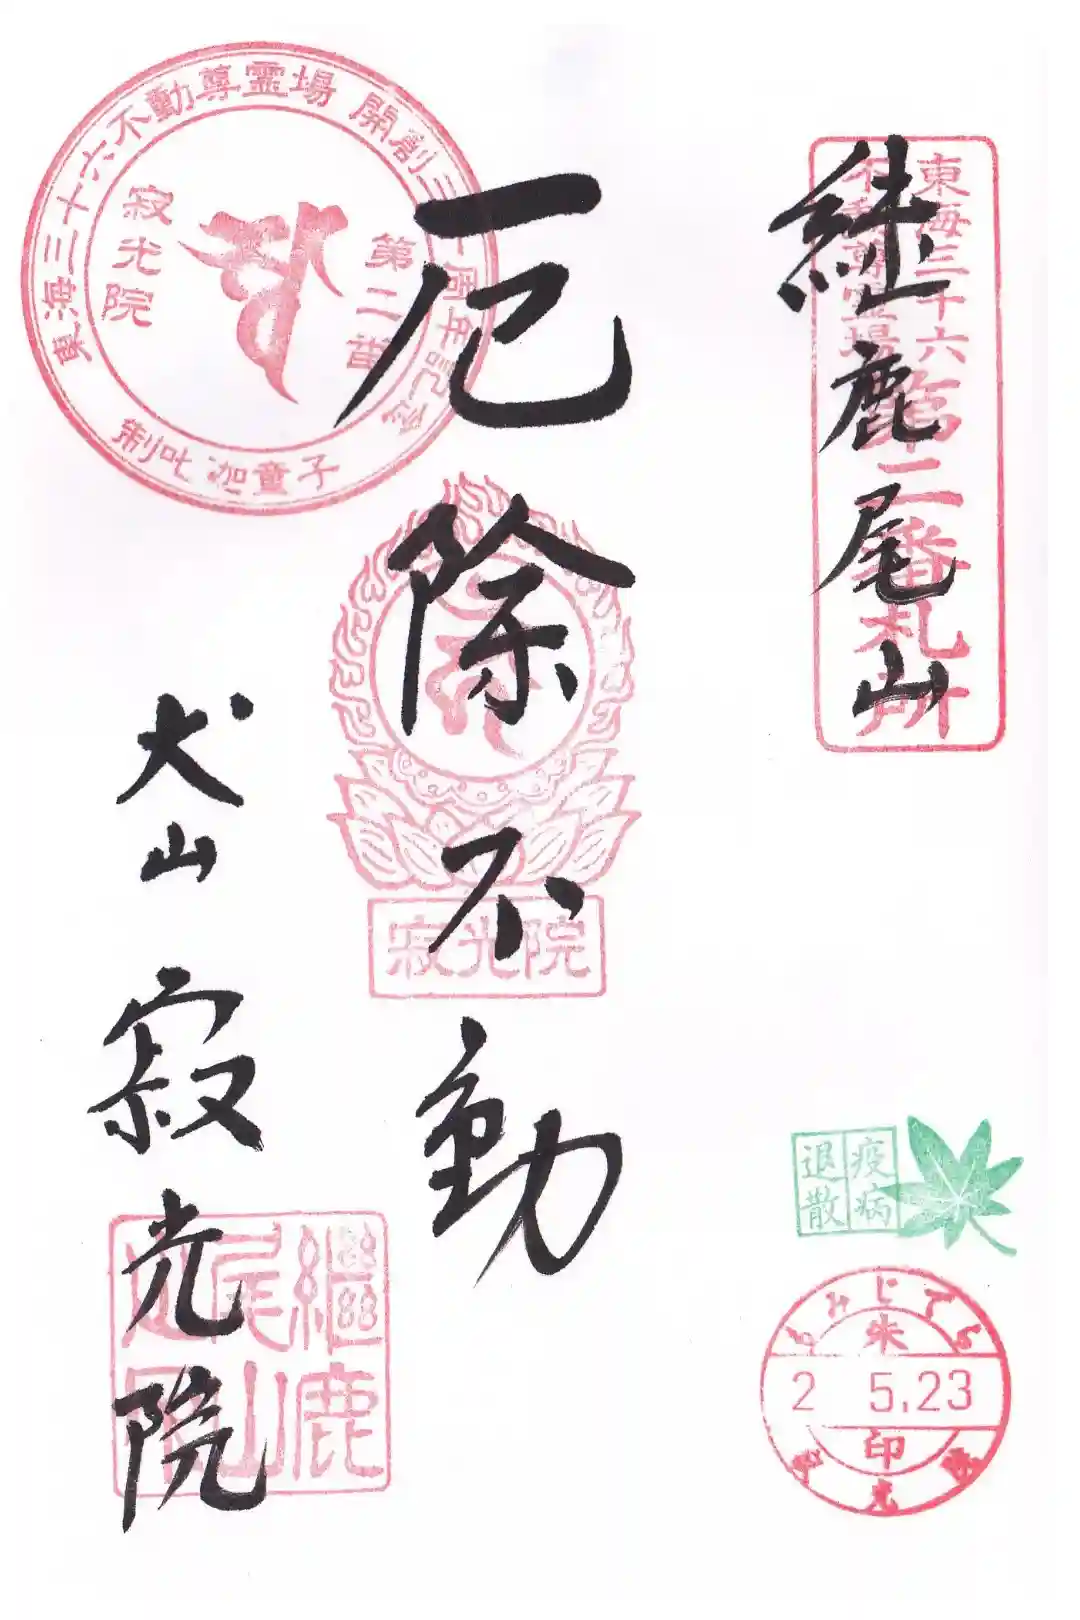 東海三十六
不動尊霊場
第二番札所
継鹿尾山
厄除不動
犬山
寂光院
東海三十六不動尊霊場 開創三十周年記念
寂光院
第二番
制吒迦童子
寂光院
継鹿
尾山
疫病
退散
もみじでら
朱
2 5.23
印
寂光院